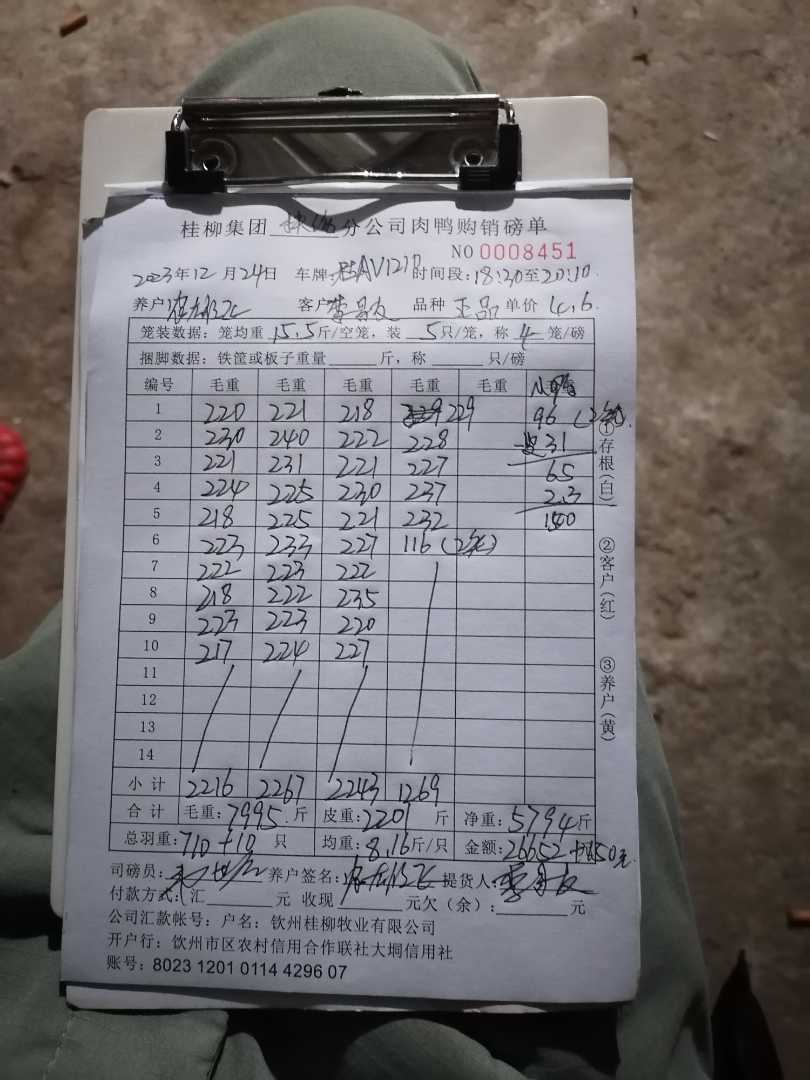 桂柳集团 分公司肉鸭购销磅单
NO 0008451
2023年12月24日 车牌:桂AV1217 时间段:18:20至20:10
养户: 客户 品种 正品 单价 4.6
笼装数据:笼均重 15.5 斤/空笼,装 5 只/笼,称 4 笼/磅
捆脚数据:铁筐或板子重量 斤,称 只/磅
编号 毛重 毛重 毛重 毛重 毛重 小鸭
1 220 221 218 229 96 (2笼)
2 230 240 222 228 皮31
3 221 231 221 227 65
4 224 225 230 237 2.3
5 218 225 221 232 150
6 223 233 227 116 (2笼)
7 222 223 222
8 218 222 235
9 223 223 220
10 217 224 227
11
12
13
14
小计 2216 2267 2243 1269
合计 毛重:7995斤 皮重:2201斤 净重:5794斤
总羽重:710+10只 均重:8.16斤/只 金额:26652+150元
司磅员: 养户签名: 提货人:
付款方式:汇 元 收现 元欠(余): 元
公司汇款帐号:户名:钦州桂柳牧业有限公司
开户行:钦州市区农村信用合作联社大垌信用社
账号:8023 1201 0114 4296 07
①存根(白)
②客户(红)
③养户(黄)